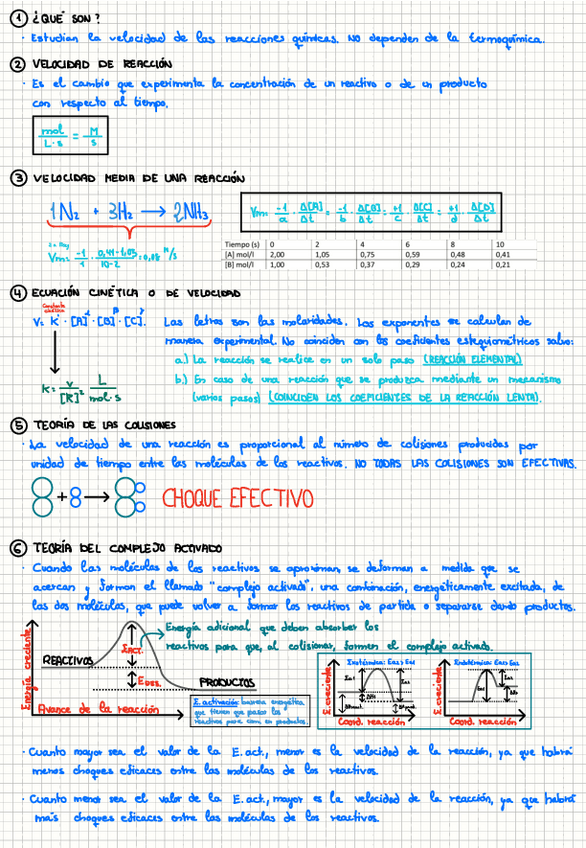 1 ¿QUÉ SON?
· Estudian la velocidad de las reacciones químicas. No dependen de la termoquímica.
2 VELOCIDAD DE REACCIÓN
· Es el cambio que experimenta la concentración de un reactivo o de un producto
con respecto al tiempo.
mol/L·s = M/s
3 VELOCIDAD MEDIA DE UNA REACCIÓN
1N₂ + 3H₂ → 2NH₃
Vm = -1/a · Δ[A]/Δt = -1/b · Δ[B]/Δt = +1/c · Δ[C]/Δt = +1/d · Δ[D]/Δt
Tiempo (s) 0 2 4 6 8 10
[A] mol/l 2,00 1,05 0,75 0,59 0,48 0,41
[B] mol/l 1,00 0,53 0,37 0,29 0,24 0,21
Vm = -1/1 · 0,41-1,05/10-2 = 0,08 M/s
4 ECUACIÓN CINÉTICA O DE VELOCIDAD
Constante cinética
V = K · [A] · [B] · [C]
Las letras son las molaridades. Los exponentes se calculan de
manera experimental. No coinciden con los coeficientes estequiométricos salvo:
a.) La reacción se realice en un solo paso (REACCIÓN ELEMENTAL)
b.) En caso de una reacción que se produzca mediante un mecanismo
(varios pasos) (COINCIDEN LOS COEFICIENTES DE LA REACCIÓN LENTA).
K = V/[R]² L/mol·s
5 TEORÍA DE LAS COLISIONES
· La velocidad de una reacción es proporcional al número de colisiones producidas por
unidad de tiempo entre las moléculas de los reactivos. NO TODAS LAS COLISIONES SON EFECTIVAS.
CHOQUE EFECTIVO
6 TEORÍA DEL COMPLEJO ACTIVADO
· Cuando las moléculas de los reactivos se aproximan, se deforman a medida que se
acercan y forman el llamado "complejo activado", una combinación, energéticamente excitada, de
las dos moléculas, que puede volver a formar los reactivos de partida o separarse dando productos.
Energía creciente
REACTIVOS
EACT.
EDES.
PRODUCTOS
Avance de la reacción
Energía adicional que deben absorber los
reactivos para que, al colisionar, formen el complejo activado.
E. activación: barrera energética
que tienen que pasar los
reactivos para conv. en productos.
E. creciente
Coord. reacción
E. creciente
Coord. reacción
· Cuanto mayor sea el valor de la E. act., menor es la velocidad de la reacción, ya que habrá
menos choques eficaces entre las moléculas de los reactivos.
· Cuanto menor sea el valor de la E. act., mayor es la velocidad de la reacción, ya que habrá
más choques eficaces entre las moléculas de los reactivos.